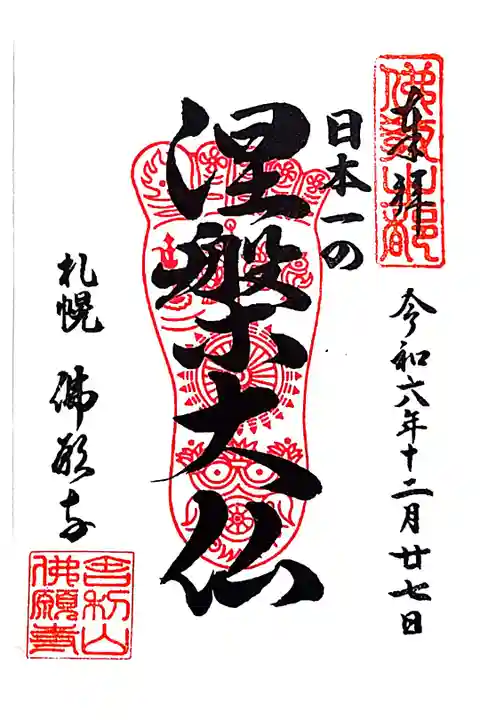 奉拝
佛教之都
令和六年十二月廿七日
日本一の
涅槃大仏
札幌 佛願寺
舎利山
佛願寺